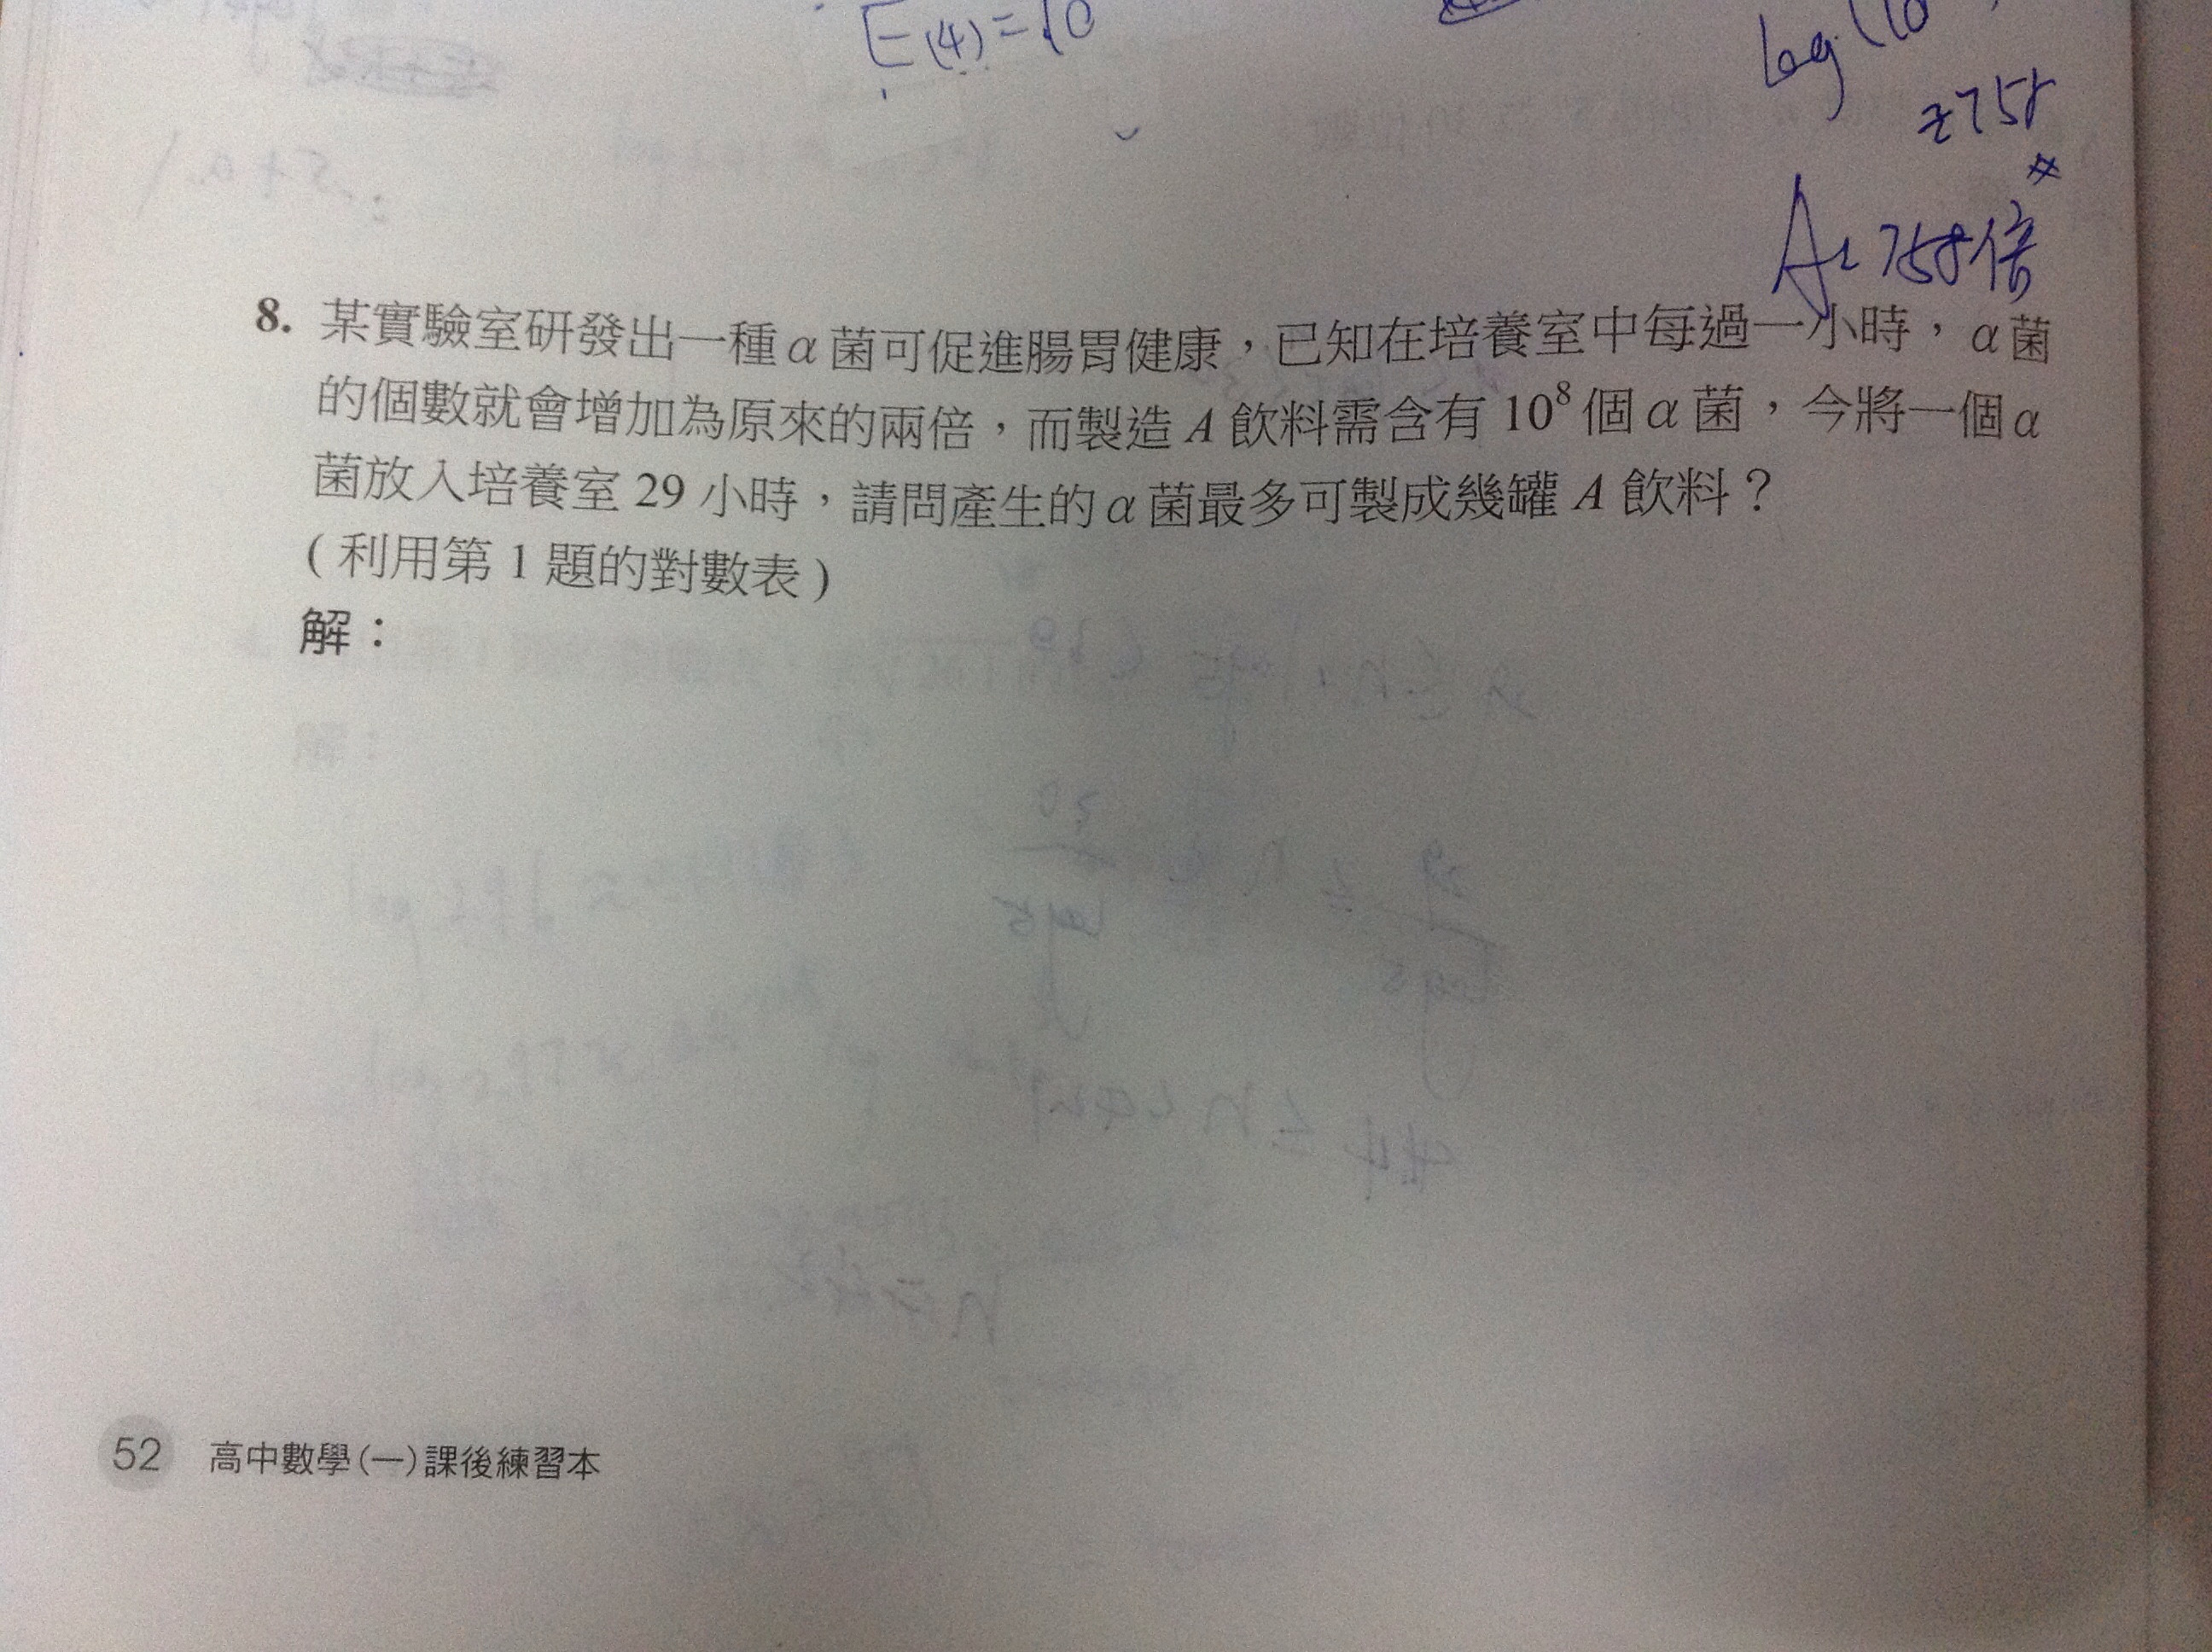 E(4)=10
log(10
≒758
A=758倍
8. 某實驗室研發出一種α菌可促進腸胃健康，已知在培養室中每過一小時，α菌
的個數就會增加為原來的兩倍，而製造 A 飲料需含有 10⁸ 個α菌，今將一個α
菌放入培養室 29 小時，請問產生的α菌最多可製成幾罐 A 飲料？
(利用第 1 題的對數表)
解：
52 高中數學(一)課後練習本